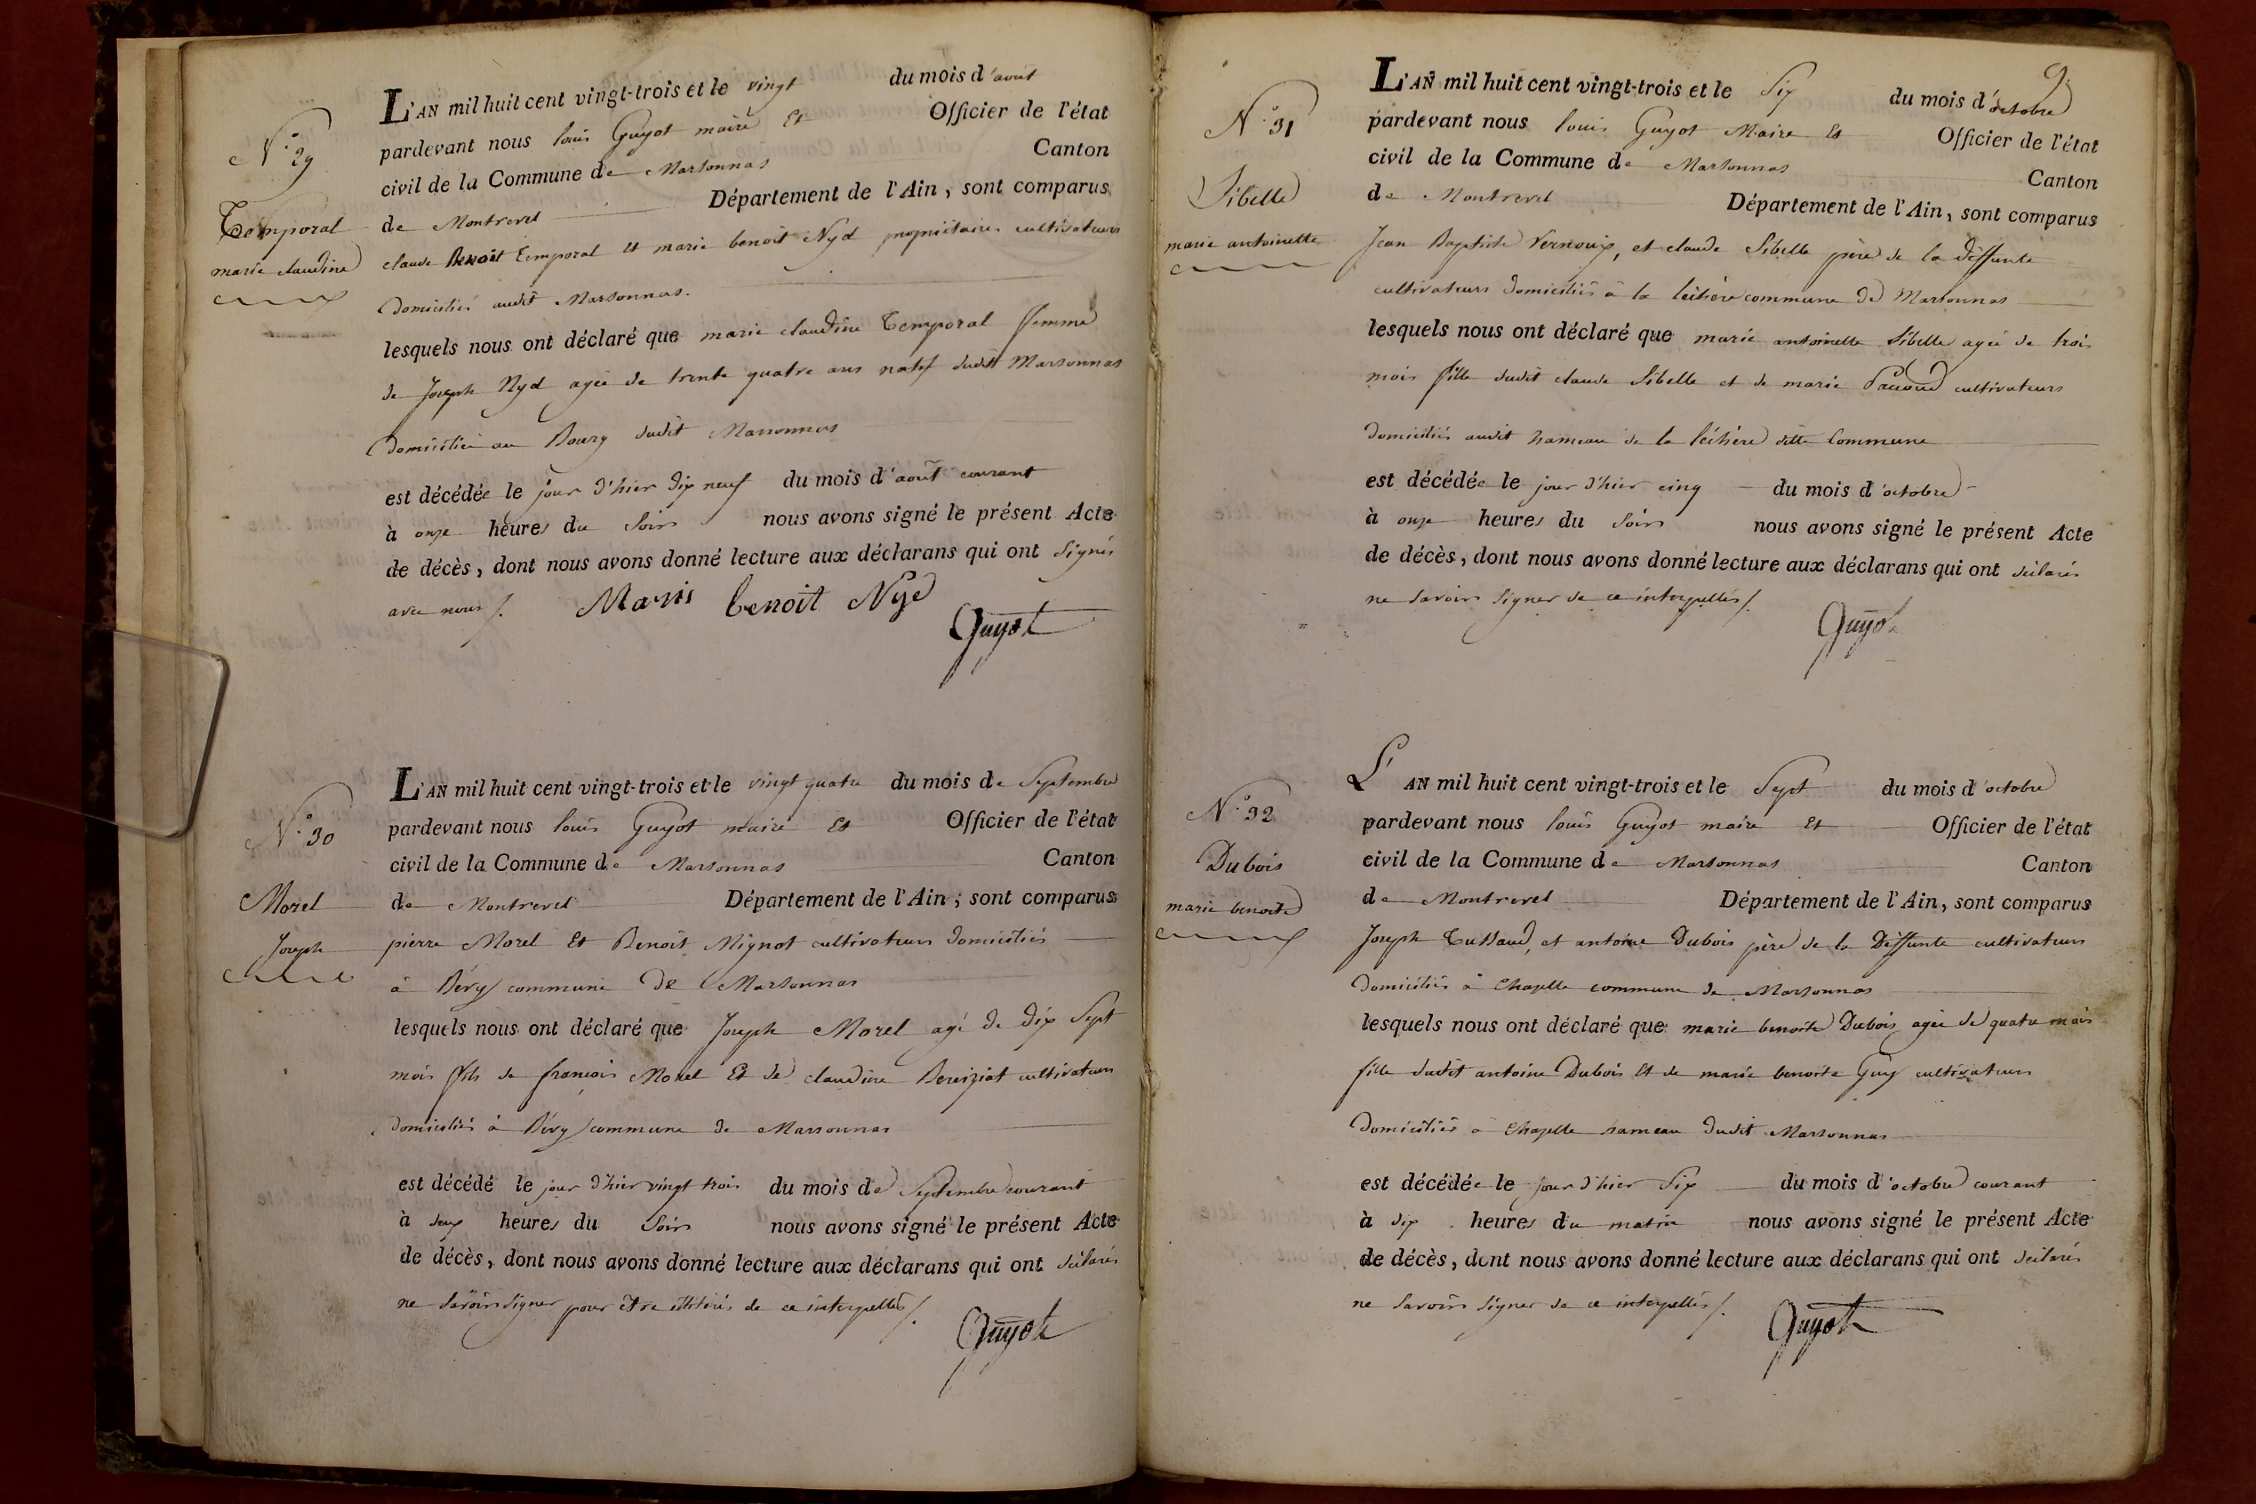 N.° 29
Temporal
marie claudine
L'AN mil huit cent vingt-trois et le vingt du mois d'août
pardevant nous louis Guyot maire Et Officier de l'état
civil de la Commune de Marsonnas Canton
de Montrevel Département de l'Ain, sont comparus
claude Benoit Temporal Et marie benoit Nyd propriétaires cultivateurs
Domiciliés audit Marsonnas.
lesquels nous ont déclaré que marie claudine Temporal femme
de Joseph Nyd agée de trente quatre ans natif dudit Marsonnas
Domiciliée au Bourg dudit Marsonnas
est décédée le jour d'hier dix neuf du mois d'août courant
à onze heures du Soir nous avons signé le présent Acte
de décès, dont nous avons donné lecture aux déclarans qui ont signés
avec nous /. Maris benoit Nyd
Guyot
N.° 30
Morel
Joseph
L'AN mil huit cent vingt-trois et le vingt quatre du mois de Septembre
pardevant nous louis Guyot maire Et Officier de l'état
civil de la Commune de Marsonnas Canton
de Montrevel Département de l'Ain, sont comparus
pierre Morel Et Benoit Mignot cultivateurs domiciliés
à Bévy commune de Marsonnas
lesquels nous ont déclaré que Joseph Morel agé de dix Sept
mois fils de françois Morel Et de claudine Bereiziat cultivateurs
domiciliés à Bévy commune de Marsonnas
est décédé le jour d'hier vingt trois du mois de Septembre courant
à deux heures du Soir nous avons signé le présent Acte
de décès, dont nous avons donné lecture aux déclarans qui ont déclarés
ne savoir signer pour être illitérés de ce interpellés /.
Guyot
9.
N.° 31
Sibelle
marie antoinette
L'AN mil huit cent vingt-trois et le Six du mois d'octobre
pardevant nous louis Guyot Maire Et Officier de l'état
civil de la Commune de Marsonnas Canton
de Montrevel Département de l'Ain, sont comparus
Jean Baptiste Vernoux, et claude Sibelle père de la deffunte
cultivateurs domiciliés à la léchère commune de Marsonnas
lesquels nous ont déclaré que marie antoinette Sibelle agée de trois
mois fille dudit claude Sibelle et de marie Pacoud cultivateurs
domiciliés audit hameau de la léchère ditte Commune
est décédée le jour d'hier cinq du mois d'octobre
à onze heures du soir nous avons signé le présent Acte
de décès, dont nous avons donné lecture aux déclarans qui ont déclarés
ne savoir signer de ce interpellés /.
Guyot
N.° 32
Dubois
marie benoite
L'AN mil huit cent vingt-trois et le Sept du mois d'octobre
pardevant nous louis Guyot maire Et Officier de l'état
civil de la Commune de Marsonnas Canton
de Montrevel Département de l'Ain, sont comparus
Joseph et antoine Dubois père de la Deffunte cultivateurs
Domiciliés à Chapelle commune de Marsonnas
lesquels nous ont déclaré que marie benoite Dubois agée de quatre mois
fille dudit antoine Dubois Et de marie benoite Guy cultivateurs
Domiciliés à Chapelle hameau dudit Marsonnas
est décédée le jour d'hier Six du mois d'octobre courant
à dix heures du matin nous avons signé le présent Acte
de décès, dont nous avons donné lecture aux déclarans qui ont déclarés
ne savoir signer de ce interpellés /.
Guyot